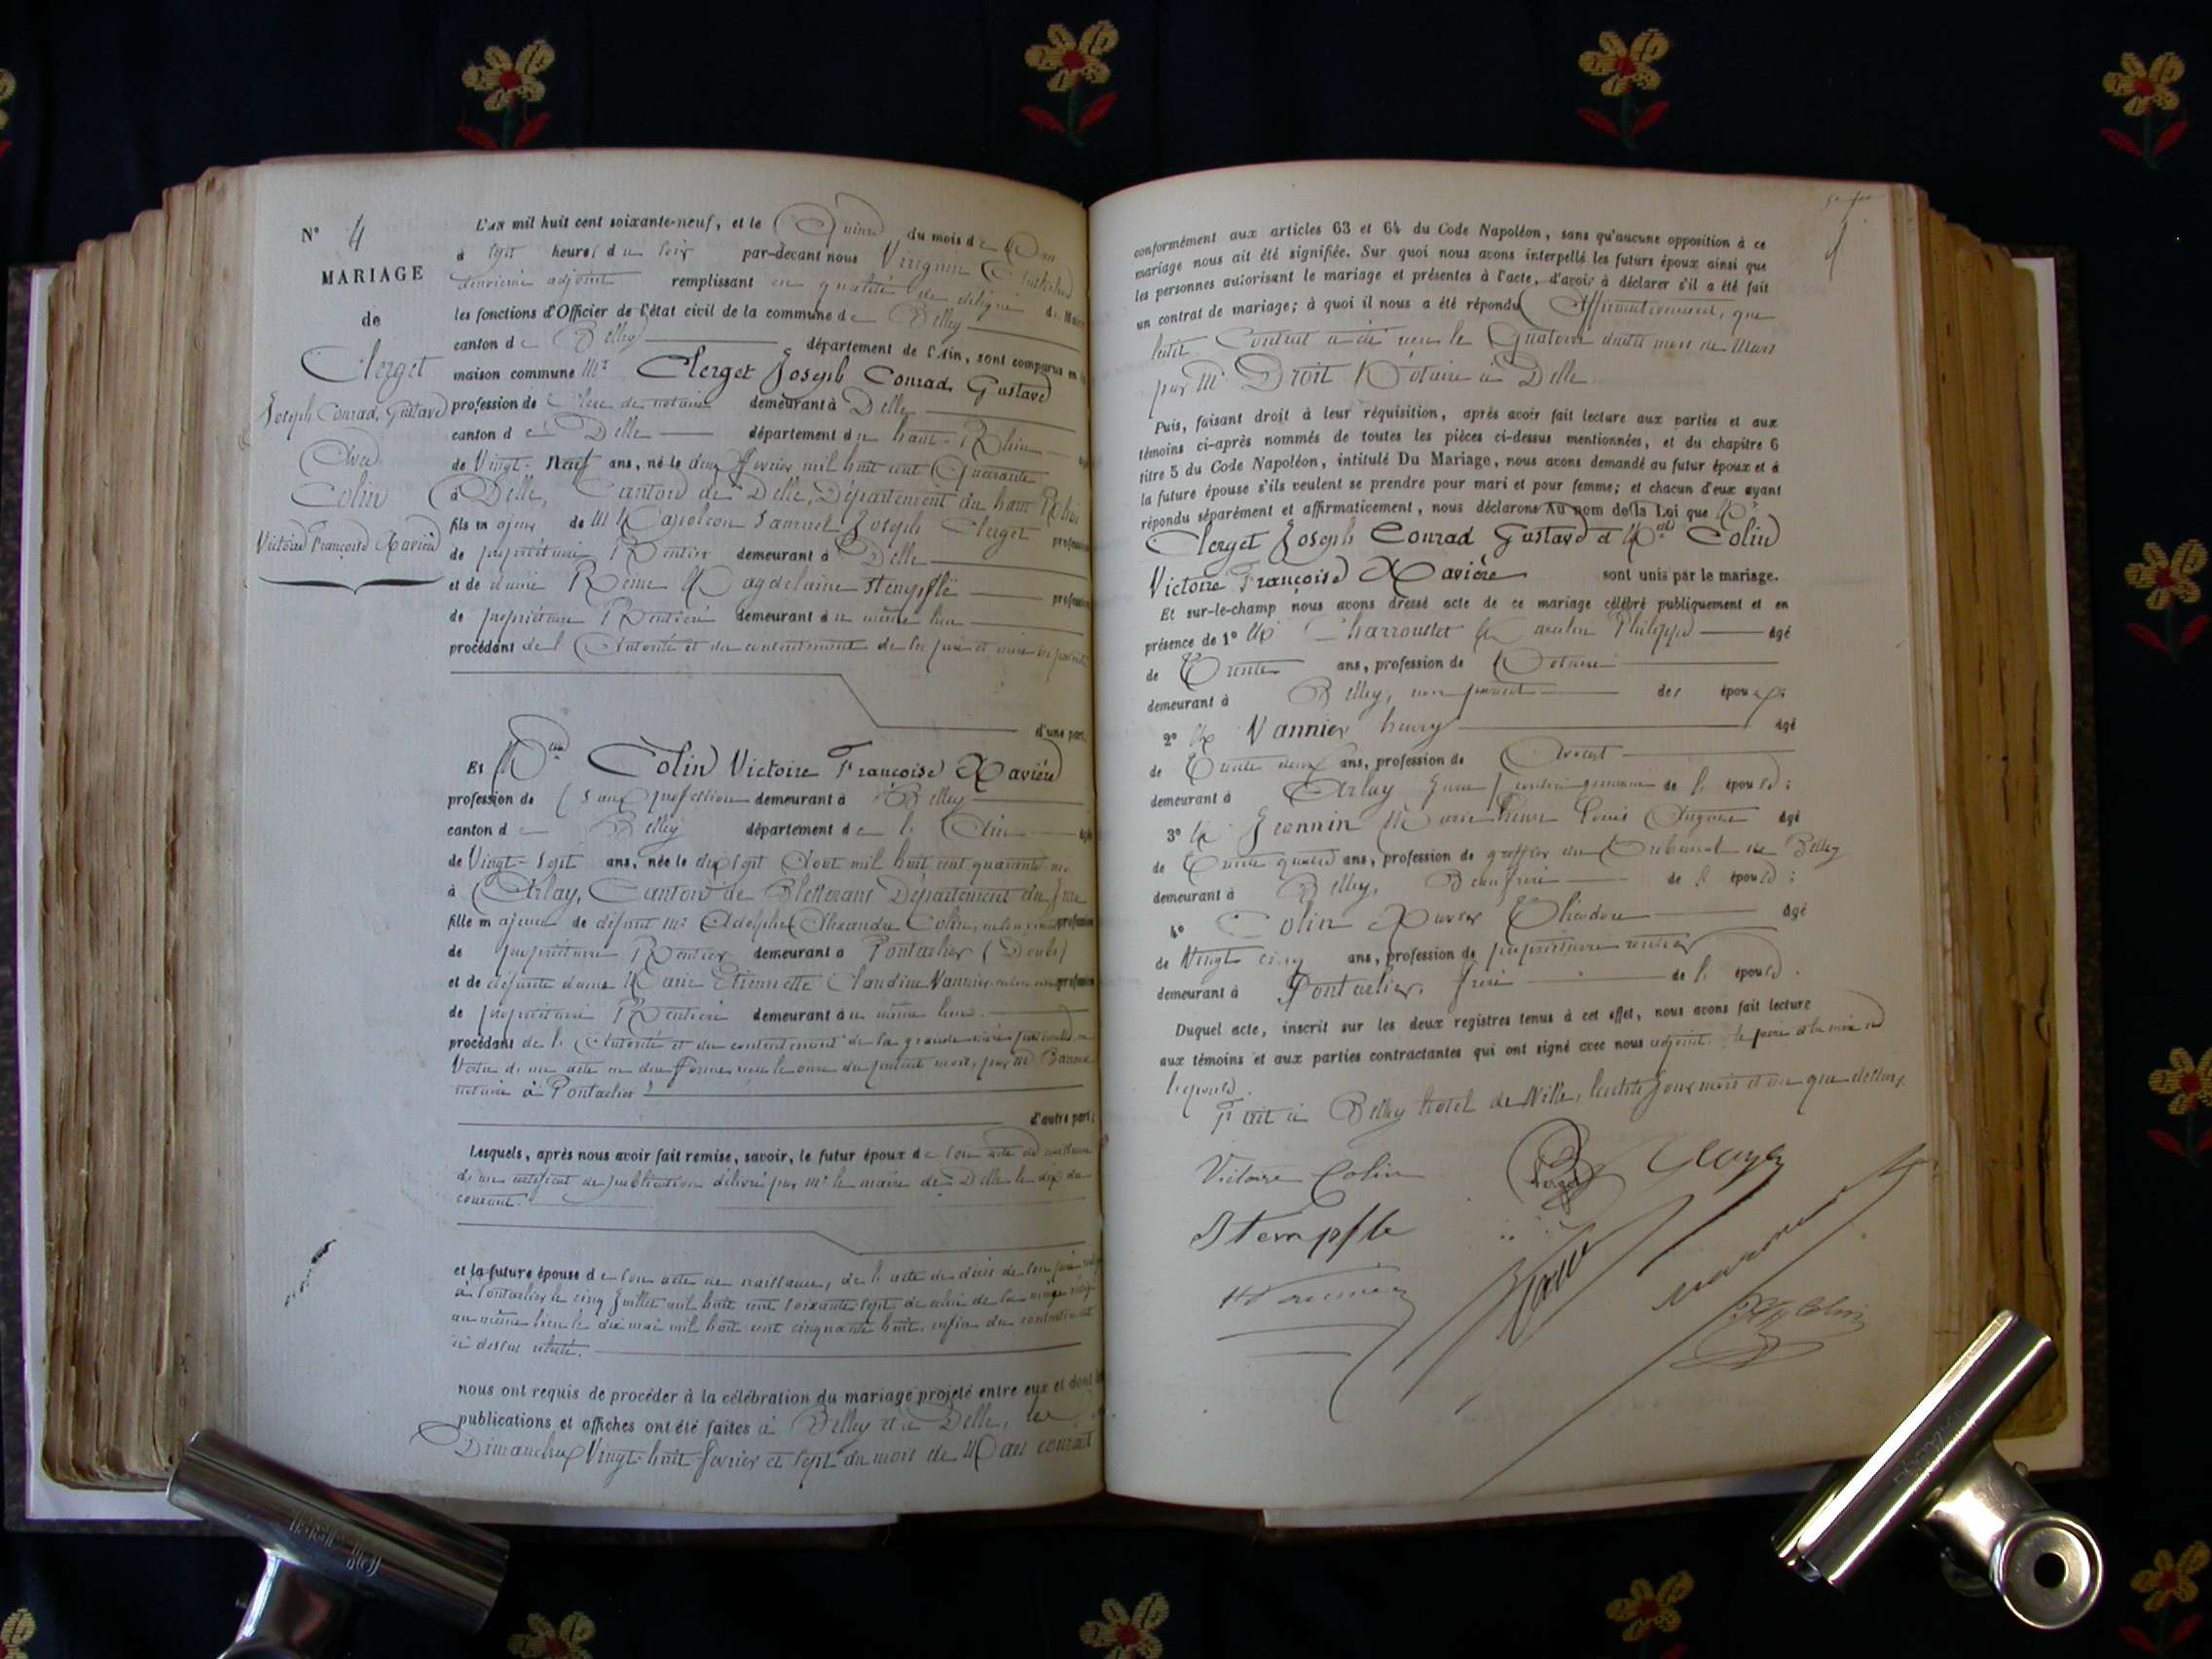 N° 4
MARIAGE
de
Clerget
Joseph Conrad, Gustave
Avec
Colin
Victoire Françoise Xavière
L'AN mil huit cent soixante-neuf, et le Quinze du mois de Mars
à sept heures du soir par-devant nous Vuignier
deuxième adjoint remplissant en qualité de délégué du Maire
les fonctions d'Officier de l'état civil de la commune de Belley
canton de Belley département de l'Ain, sont comparus en la
maison commune Mr Clerget Joseph Conrad, Gustave
profession de Clerc de notaire demeurant à Delle
canton de Delle département du haut-Rhin âgé
de Vingt-Neuf ans, né le deux février mil huit cent Quarante
à Delle, Canton de Delle, Département du haut Rhin
fils majeur de Mr Napoléon Samuel Joseph Clerget profession
de propriétaire Rentier demeurant à Delle
et de dame Reine Magdelaine Stempflé profession
de propriétaire Rentière demeurant au même lieu
procédant de l'Autorité et du consentement de ses père et mère
d'une part,
Et Melle Colin Victoire Françoise Xavière
profession de Sans profession demeurant à Belley
canton de Belley département de l'Ain âgée
de Vingt-Sept ans, née le dix sept Août mil huit cent quarante-un
à Arlay, Canton de Bletterans Département du Jura
fille majeure de défunt Mr Adolphe Alexandre Colin, en son vivant profession
de propriétaire Rentier demeurant à Pontarlier (Doubs)
et de défunte dame Marie Etiennette Claudine Vannier, profession
de propriétaire Rentière demeurant au même lieu
procédant de l'Autorité et du consentement de sa grand-mère paternelle en
Vertu d'un acte en due forme reçu le onze du présent mois, par Me
notaire à Pontarlier
d'autre part;
Lesquels, après nous avoir fait remise, savoir, le futur époux de son acte de naissance
d'un certificat de publication délivré par Mr le maire de Delle le dix du
courant.
et la future épouse de son acte de naissance, de l'acte de décès de son père
à Pontarlier le cinq Juillet mil huit cent soixante sept, de celui de sa mère
au même lieu le dix mai mil huit cent cinquante huit, enfin du consentement
ci dessus relaté.
nous ont requis de procéder à la célébration du mariage projeté entre eux et dont les
publications et affiches ont été faites à Belley et à Delle, les
Dimanches Vingt-huit février et Sept du mois de Mars courant
conformément aux articles 63 et 64 du Code Napoléon, sans qu'aucune opposition à ce
mariage nous ait été signifiée. Sur quoi nous avons interpellé les futurs époux ainsi que
les personnes autorisant le mariage et présentes à l'acte, d'avoir à déclarer s'il a été fait
un contrat de mariage; à quoi il nous a été répondu Affirmativement, que
ledit Contrat a été reçu le Quatorze dudit mois de Mars
par Me Droit Notaire à Delle
Puis, faisant droit à leur réquisition, après avoir fait lecture aux parties et aux
témoins ci-après nommés de toutes les pièces ci-dessus mentionnées, et du chapitre 6
titre 5 du Code Napoléon, intitulé Du Mariage, nous avons demandé au futur époux et à
la future épouse s'ils veulent se prendre pour mari et pour femme; et chacun d'eux ayant
répondu séparément et affirmativement, nous déclarons Au nom de la Loi que Mr
Clerget Joseph Conrad Gustave et Melle Colin
Victoire Françoise Xavière sont unis par le mariage.
Et sur-le-champ nous avons dressé acte de ce mariage célébré publiquement et en
présence de 1° Mr Philippe âgé
de Trente ans, profession de Notaire
demeurant à Belley, non parent des époux;
2° Mr Vannier henry âgé
de Trente deux ans, profession de Avocat
demeurant à Arlay Jura, cousin germain de l'épouse;
3° Mr Jeannin Marie Louis âgé
de Trente quatre ans, profession de greffier au Tribunal de Belley
demeurant à Belley, Beaufrère de l'épouse;
4° Colin Xavier Théodore âgé
de Vingt cinq ans, profession de propriétaire rentier
demeurant à Pontarlier, frère de l'épouse.
Duquel acte, inscrit sur les deux registres tenus à cet effet, nous avons fait lecture
aux témoins et aux parties contractantes qui ont signé avec nous adjoint. le père et la mère de
l'épouse.
Fait à Belley hotel de Ville, lesdits jour mois et an que dessus.
Victoire Colin
Stempfle
H Vannier
X Colin